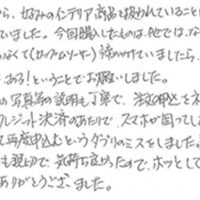 から、好みのインテリア商品を扱われていること
いました。今回購入したものは他では、な
らなくて(カップ&ソーサー)諦めていましたら、
ある！ということでお願いしました。
の写真等の説明も丁寧で、注文の申込をネ
クレジット決済のあたりで、スマホが固ってしま
って再度申込むというダブりのミスをしました。
も親切で、気持ち良かったので、ホッとして
ありがとうございました。